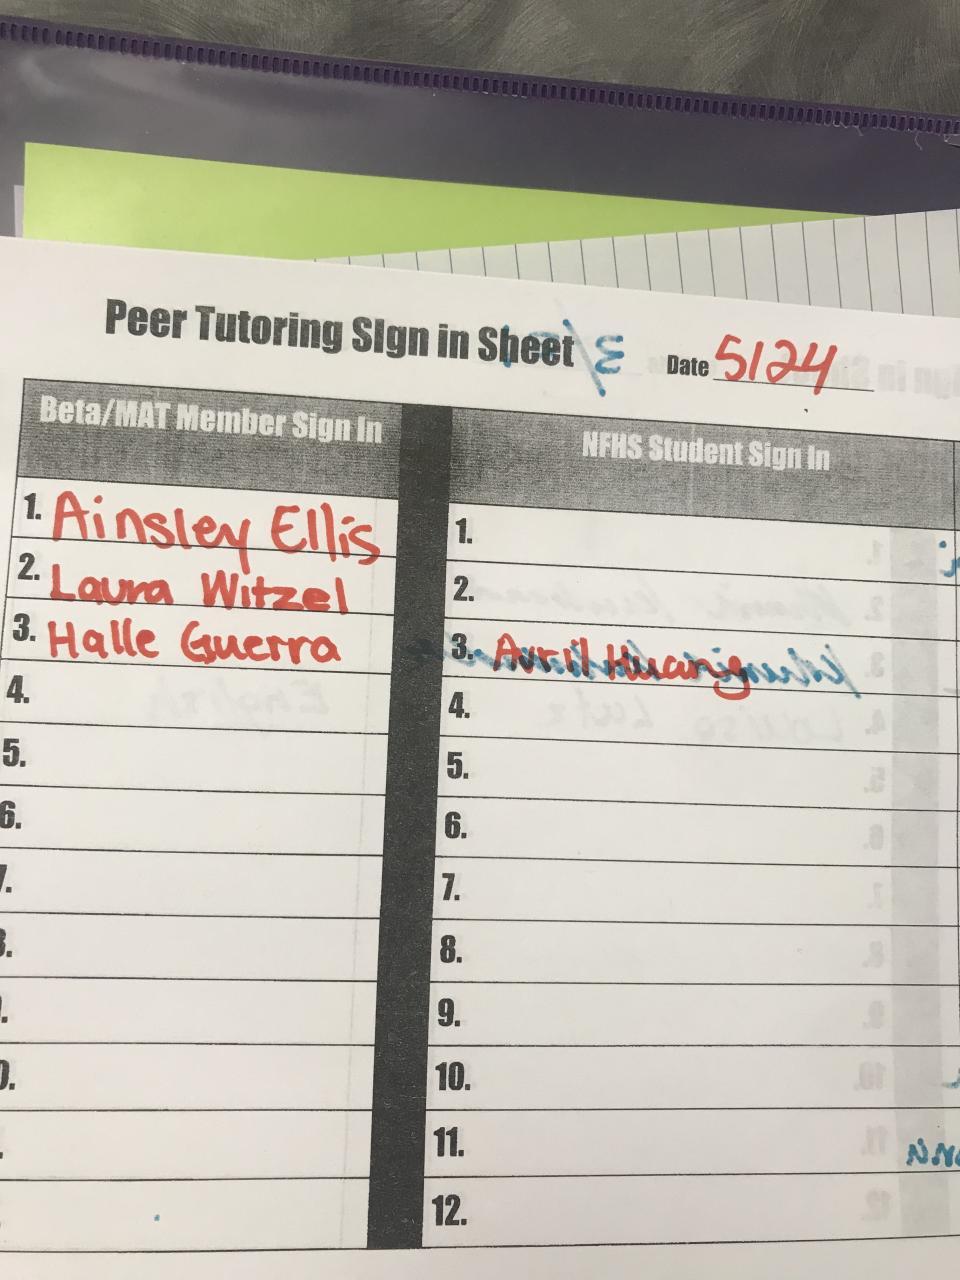 Peer Tutoring SIgn in Sheet
Date 5/24
Beta/MAT Member Sign In
NFHS Student Sign In
1. Ainsley Ellis
2. Laura Witzel
3. Halle Guerra
4.
5.
6.
7.
1.
2.
3. Avril Huang
4.
5.
6.
7.
8.
9.
10.
11.
12.